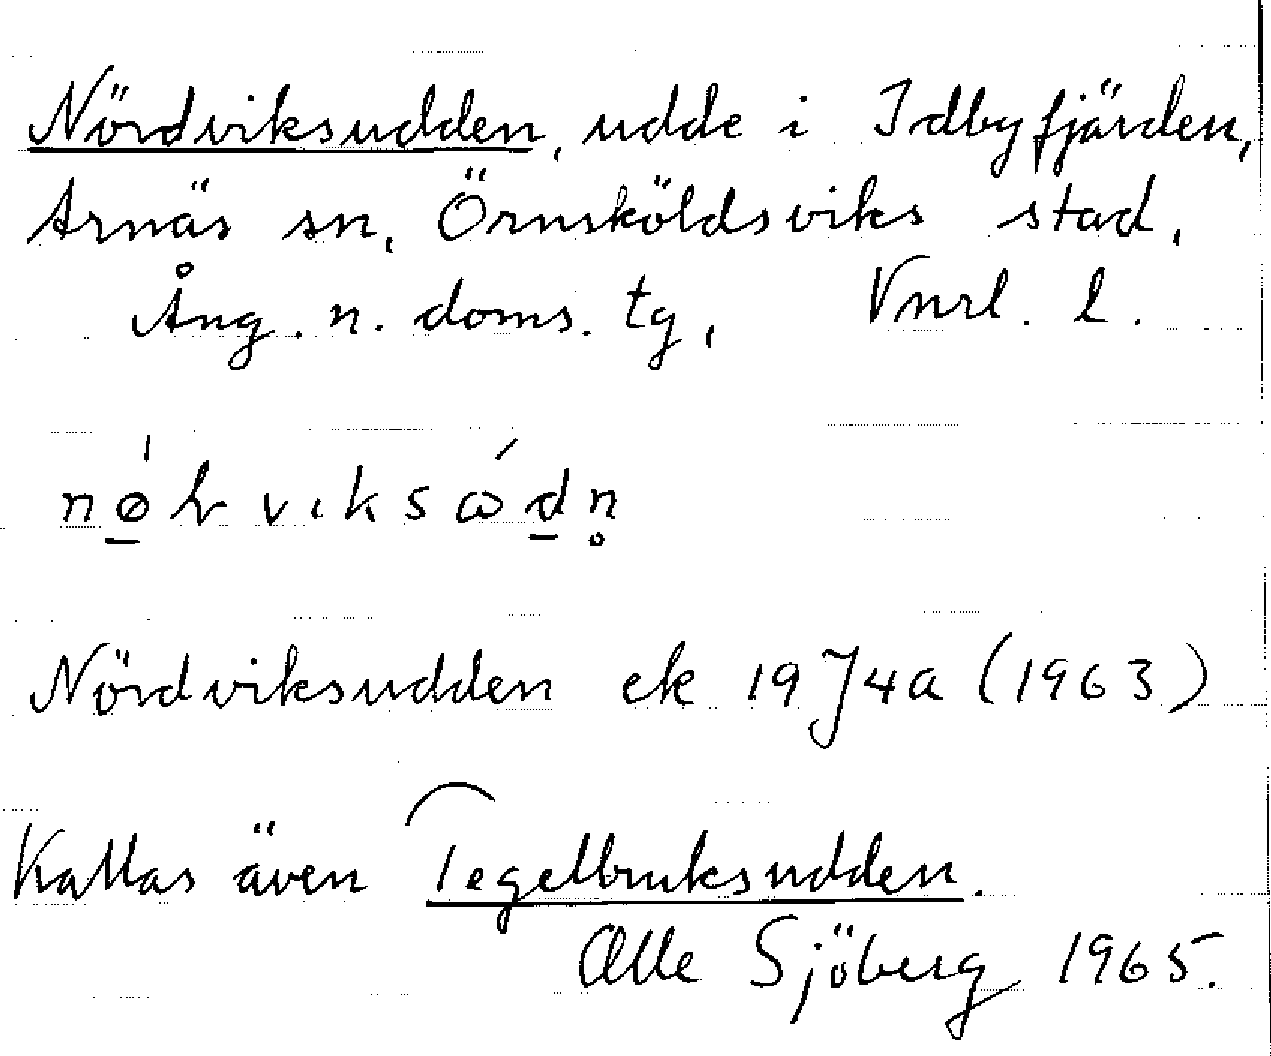 Nördviksudden, udde i Idbyfjärden,
Arnäs sn, Örnsköldsviks stad,
Ång. n. doms. tg, Vnrl. l.
Nördviksudden ek 19J4a (1963)
Kallas även Tegelbruksudden.
Olle Sjöberg 1965.